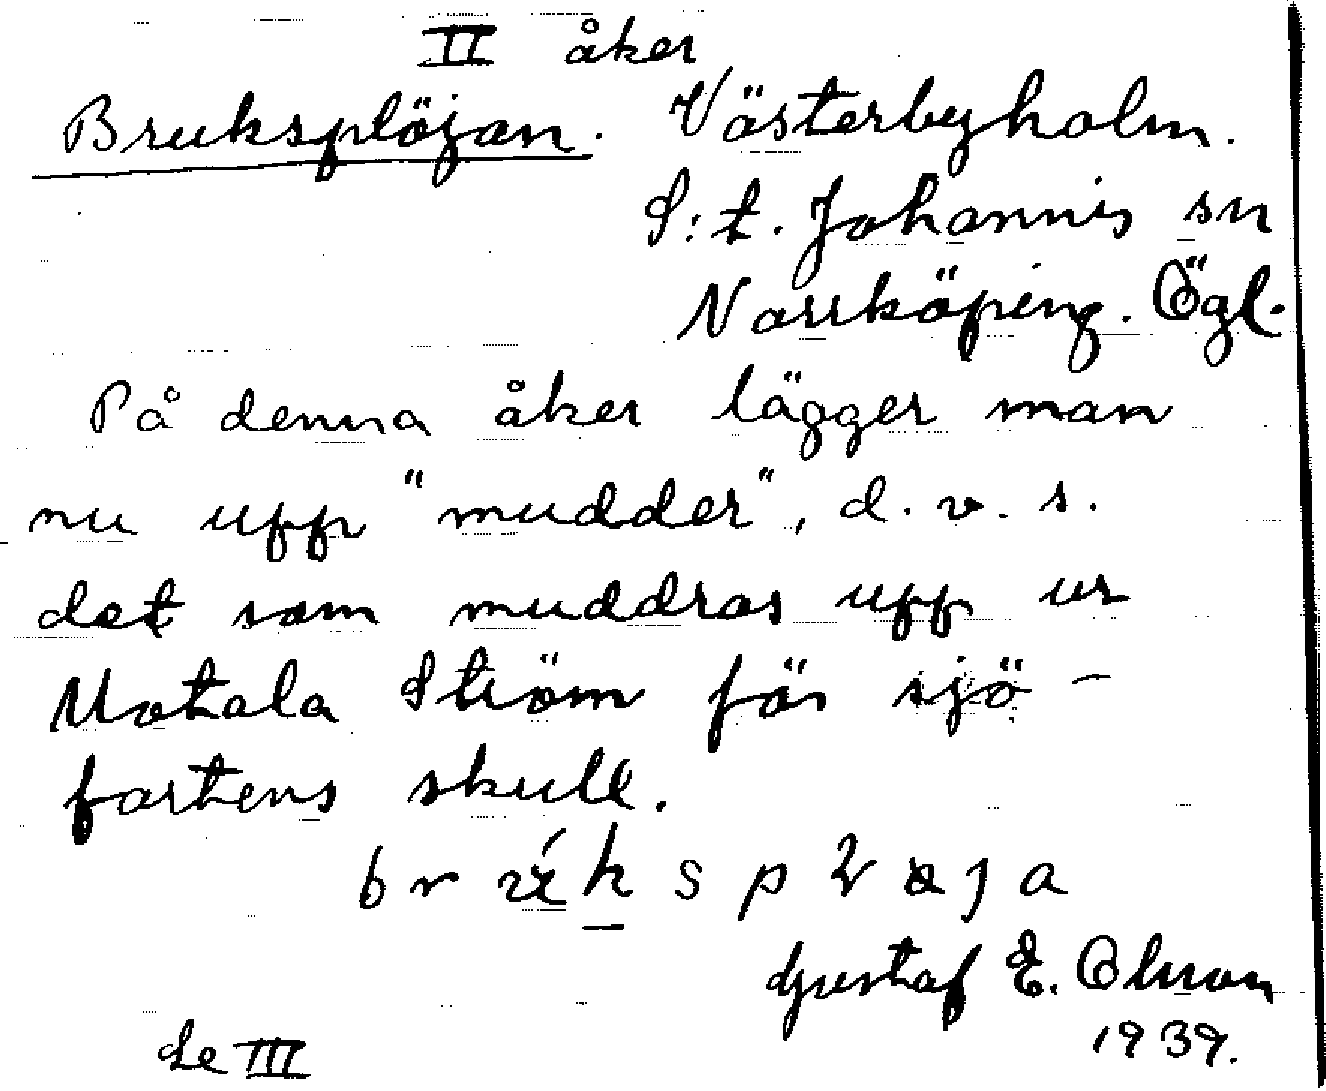 II åker
Bruksplöjan. Västerbyholm.
S:t. Johannis sn
Norrköping. Ögl.
På denna åker lägger man
nu upp "mudder", d. v. s.
det som muddras upp ur
Motala Ström för sjö-
fartens skull.
Gustaf E. Olsson
1939.
Le III